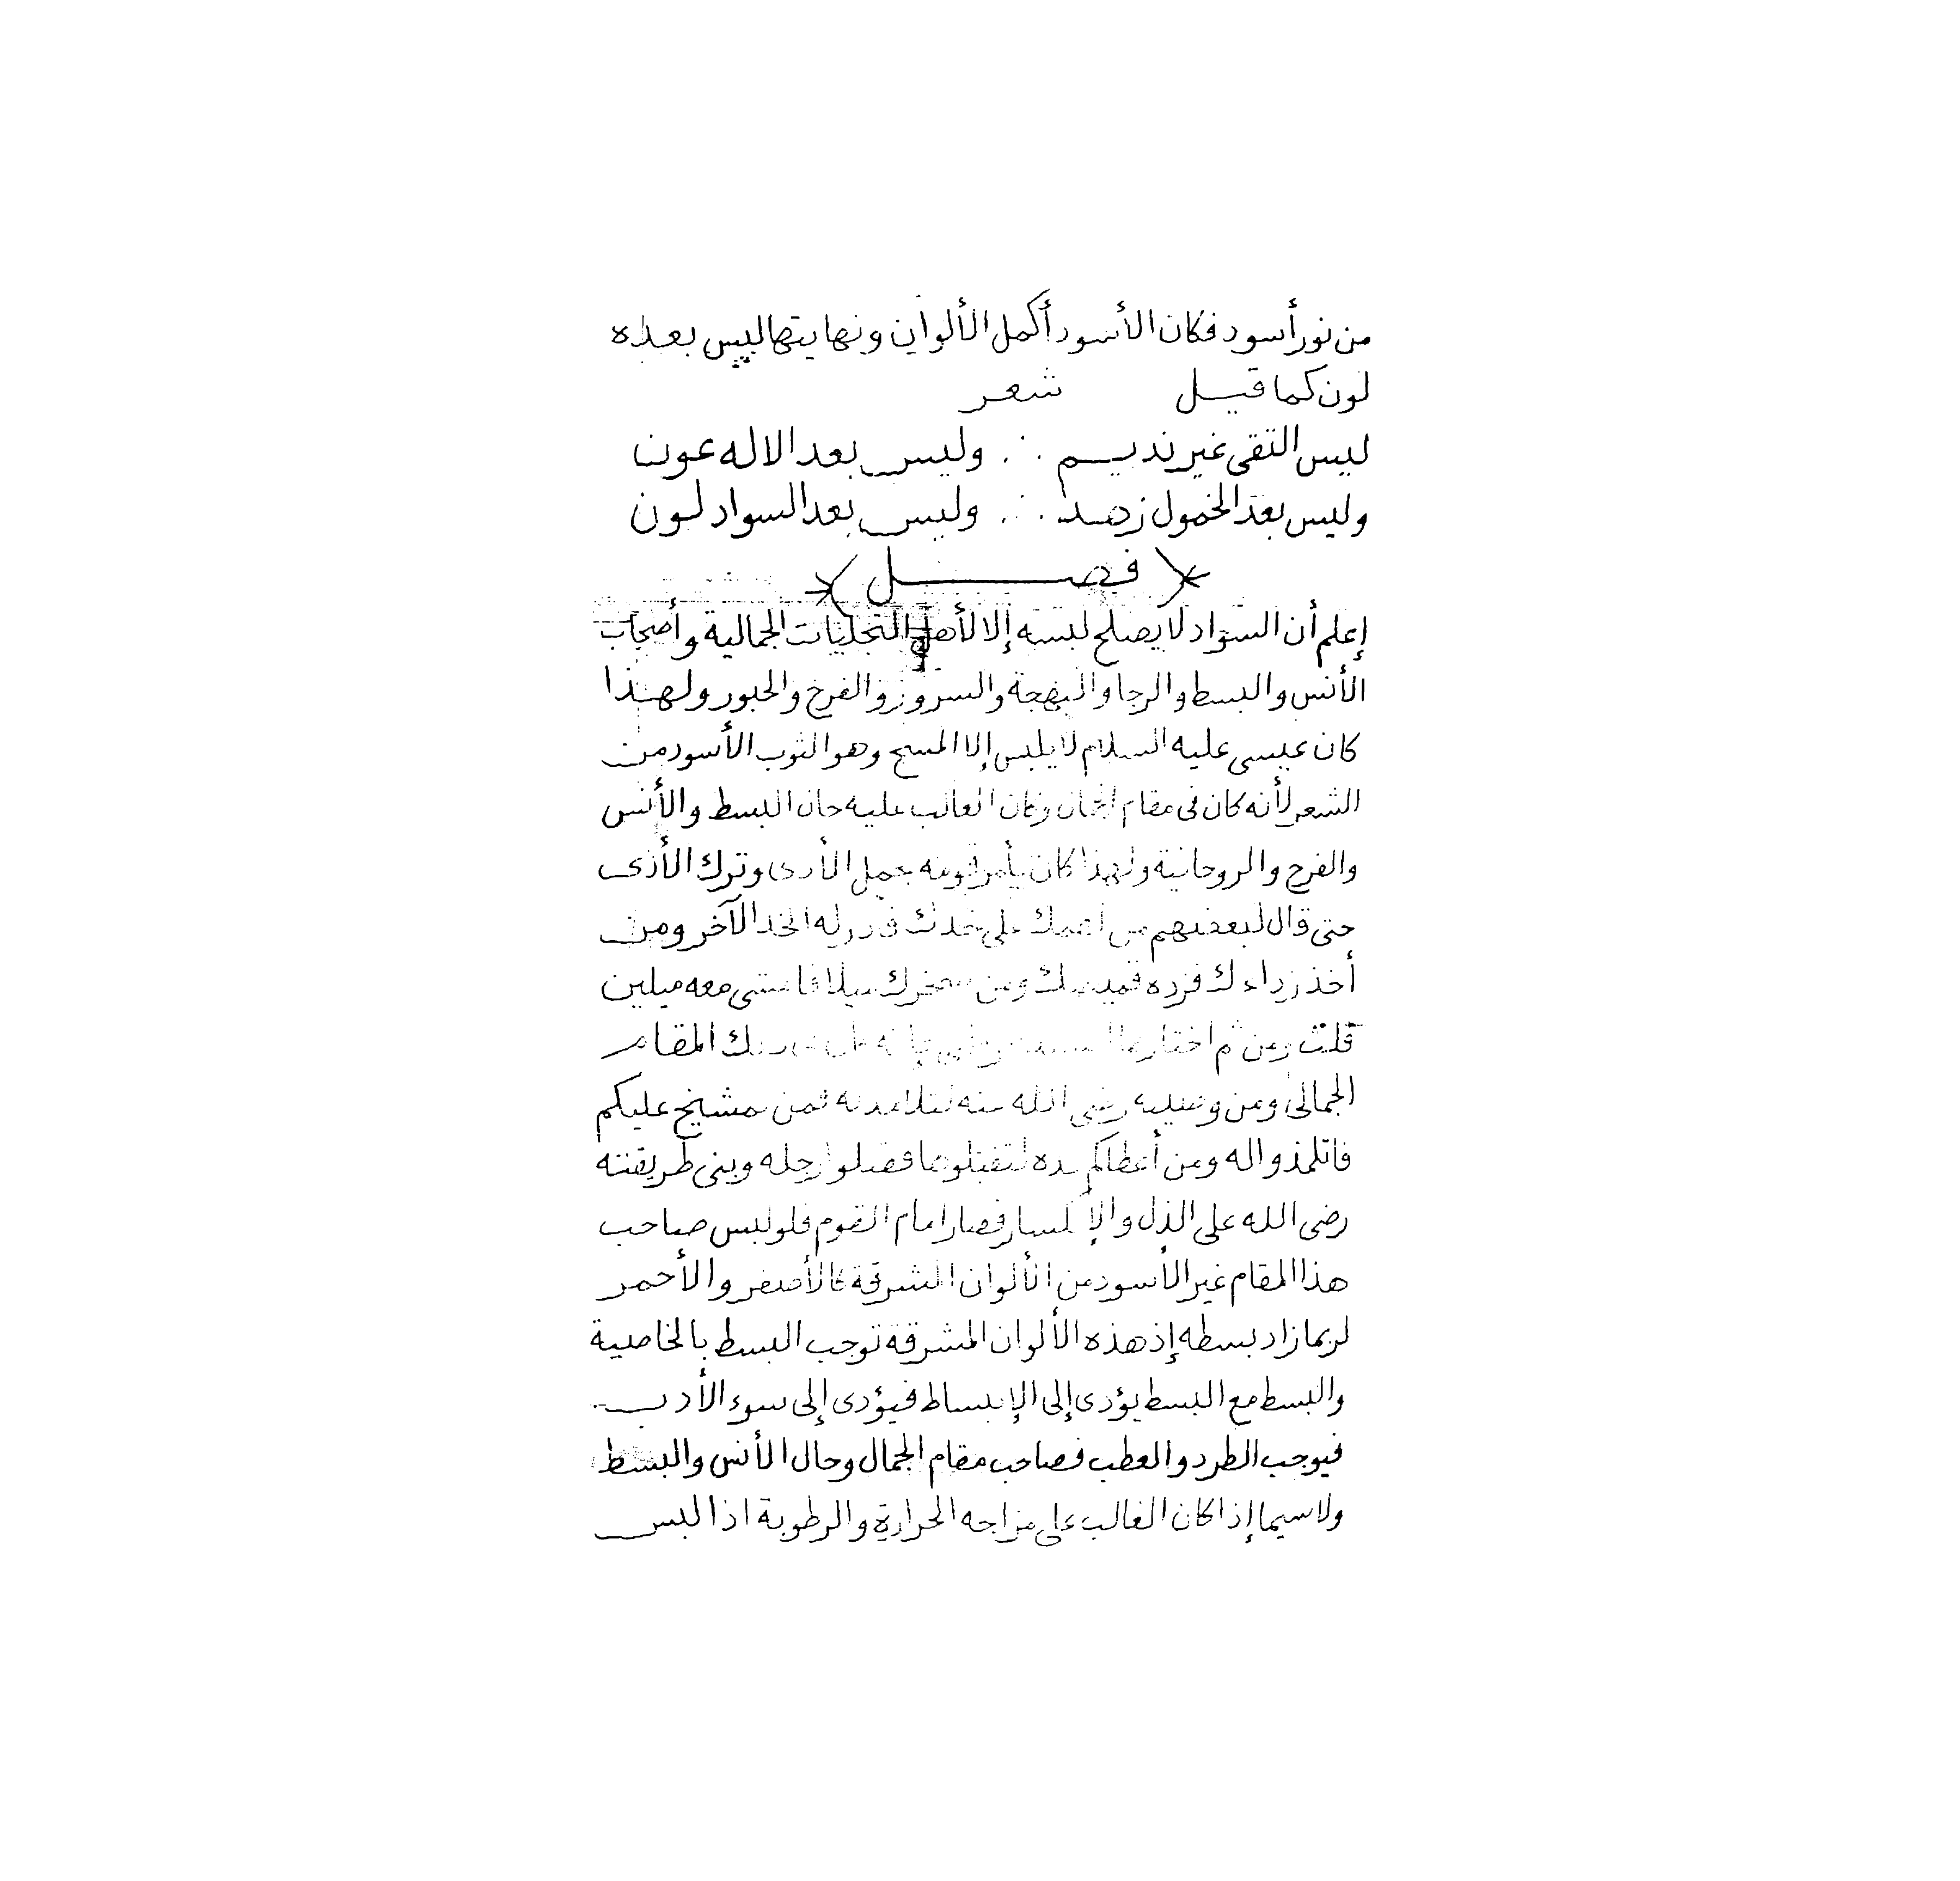 من نور أسود فكان الأسود أكمل الألوان ونهايتها ليس بعده
لون كما قيل شعر
ليس التقى غير نديم ∴ وليس بعد الاله عون
وليس بعد الخمول زهد ∴ وليس بعد السواد لون
فصل
إعلم أن السواد لا يصلح لبسه إلا لأهل التجليات الجمالية وأصحاب
الأنس والبسط والرجا والبهجة والسرور والفرح والحبور ولهذا
كان عيسى عليه السلام لا يلبس إلا المسح وهو الثوب الأسود من
الشعر لأنه كان فى مقام الجمال وكان الغالب عليه حال البسط والأنس
والفرح والروحانية ولهذا كان يأمر قومه بحمل الأذى وترك الأذى
حتى قال لبعضهم من لطمك على خدك فادر له الخد الآخر ومن
أخذ رداءك فزده قميصك ومن سخرك ميلا فامشى معه ميلين
قلت ومن ثم اختارها المقام
الجمالى ومن وصيته رضى الله عنه لتلامذته فمن تمشيخ عليكم
فاتلمذوا له ومن أعطاكم يده لتقبلوها فقبلوا رجله وبنى طريقته
رضى الله على الذل والإنكسار فصار امام القوم فلو لبس صاحب
هذا المقام غير الأسود من الألوان المشرقة كالأصفر والأحمر
لربما زاد بسطه إذ هذه الألوان المشرقة توجب البسط بالخاصية
والبسط مع البسط يؤدى إلى الإبساط فيؤدى إلى سوء الأدب
فيوجب الطرد والعطب فصاحب مقام الجمال وحال الأنس والبسط
ولا سيما إذا كان الغالب على مزاجه الحرارة والرطوبة اذا لبس